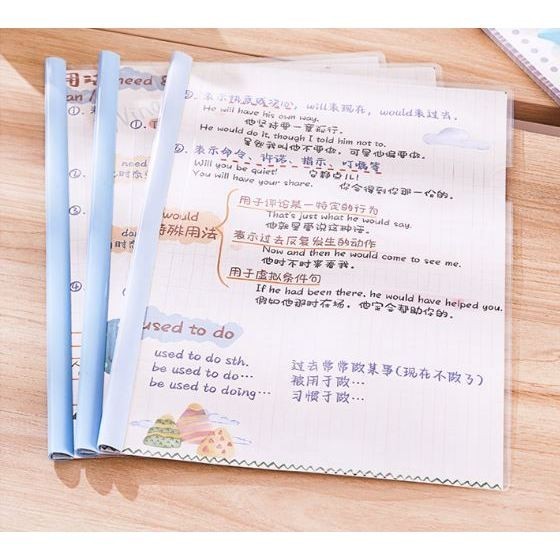 用法 need &
an /
need
①. 表示执意或决心, will表现在, would表过去.
He will have his own way.
他坚持要一意孤行。
He would do it, though I told him not to.
虽然我叫他不要做, 可是他偏要做。
⑤. 表示命令、许诺、指示、叮嘱等
Will you be quiet! 安静点儿!
You will have your share. 你会得到你那一份的。
would
特殊用法
用于评论某一特定的行为
That's just what he would say.
他就是要说这种话。
表示过去反复发生的动作
Now and then he would come to see me.
他时不时来看我。
用于虚拟条件句
If he had been there, he would have helped you.
假如他那时在场, 他定会帮助你的。
used to do
used to do sth. 过去常常做某事(现在不做了)
be used to do… 被用于做…
be used to doing… 习惯于做…